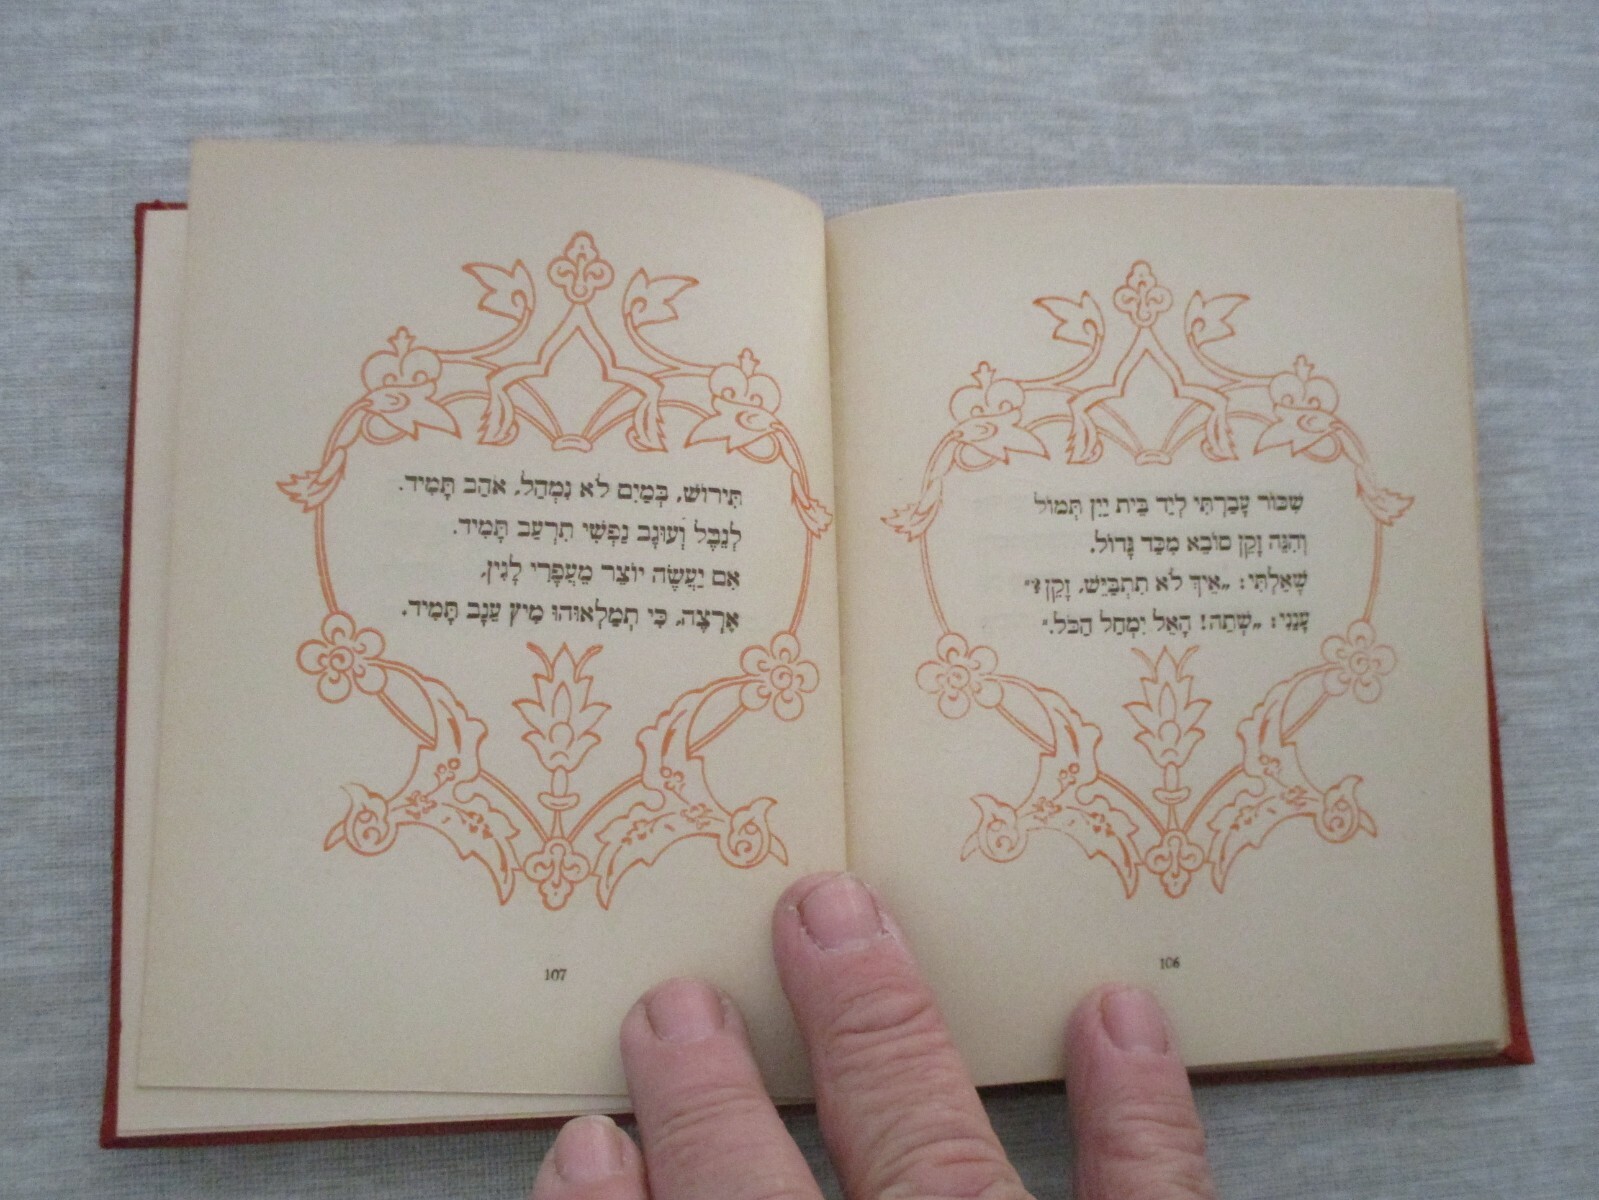 שִׁכּוֹר עָבַרְתִּי לְיַד בֵּית יַיִן תְּמוֹל
וְהִנֵּה זָקֵן סוֹבֵא מִכַּד גָּדוֹל.
שָׁאַלְתִּי: „אֵיךְ לֹא תִתְבַּיֵּשׁ, זָקֵן?"
עָנַנִי: „שְׁתֵה! הָאֵל יִמְחַל הַכֹּל."
106
תִּירוֹשׁ, בְּמַיִם לֹא נִמְהַל, אֹהַב תָּמִיד.
לְנֵבֶל וְעוּגָב נַפְשִׁי תִרְעַב תָּמִיד.
אִם יַעֲשֶׂה יוֹצֵר מֵעֲפָרִי לָגִין,
אֶרְצֶה, כִּי תְמַלְאוּהוּ מִיץ עֵנָב תָּמִיד.
107